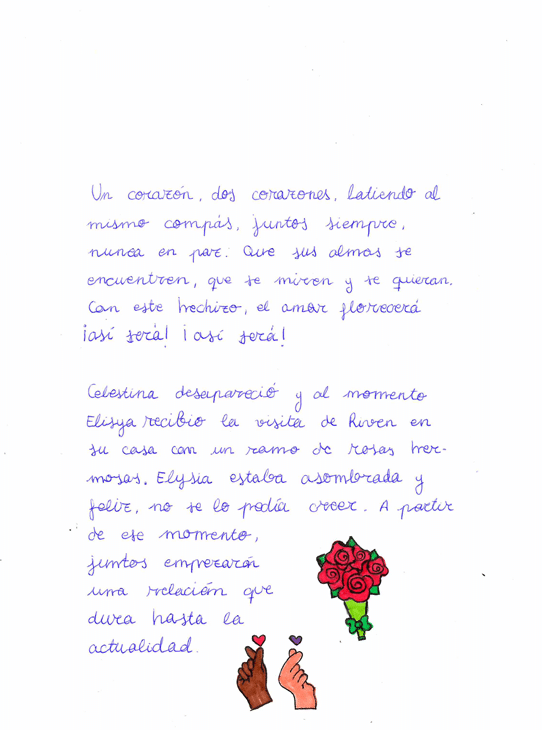 Un corazón, dos corazones, latiendo al
mismo compás, juntos siempre,
nunca en paz. Que sus almas se
encuentren, que se miren y se quieran.
Con este hechizo, el amor florecerá
¡así será! ¡así será!
Celestina desapareció y al momento
Elisya recibio la visita de Riven en
su casa con un ramo de rosas her-
mosas. Elysia estaba asombrada y
feliz, no se lo podía creer. A partir
de ese momento,
juntos empezarán
una relación que
dura hasta la
actualidad.